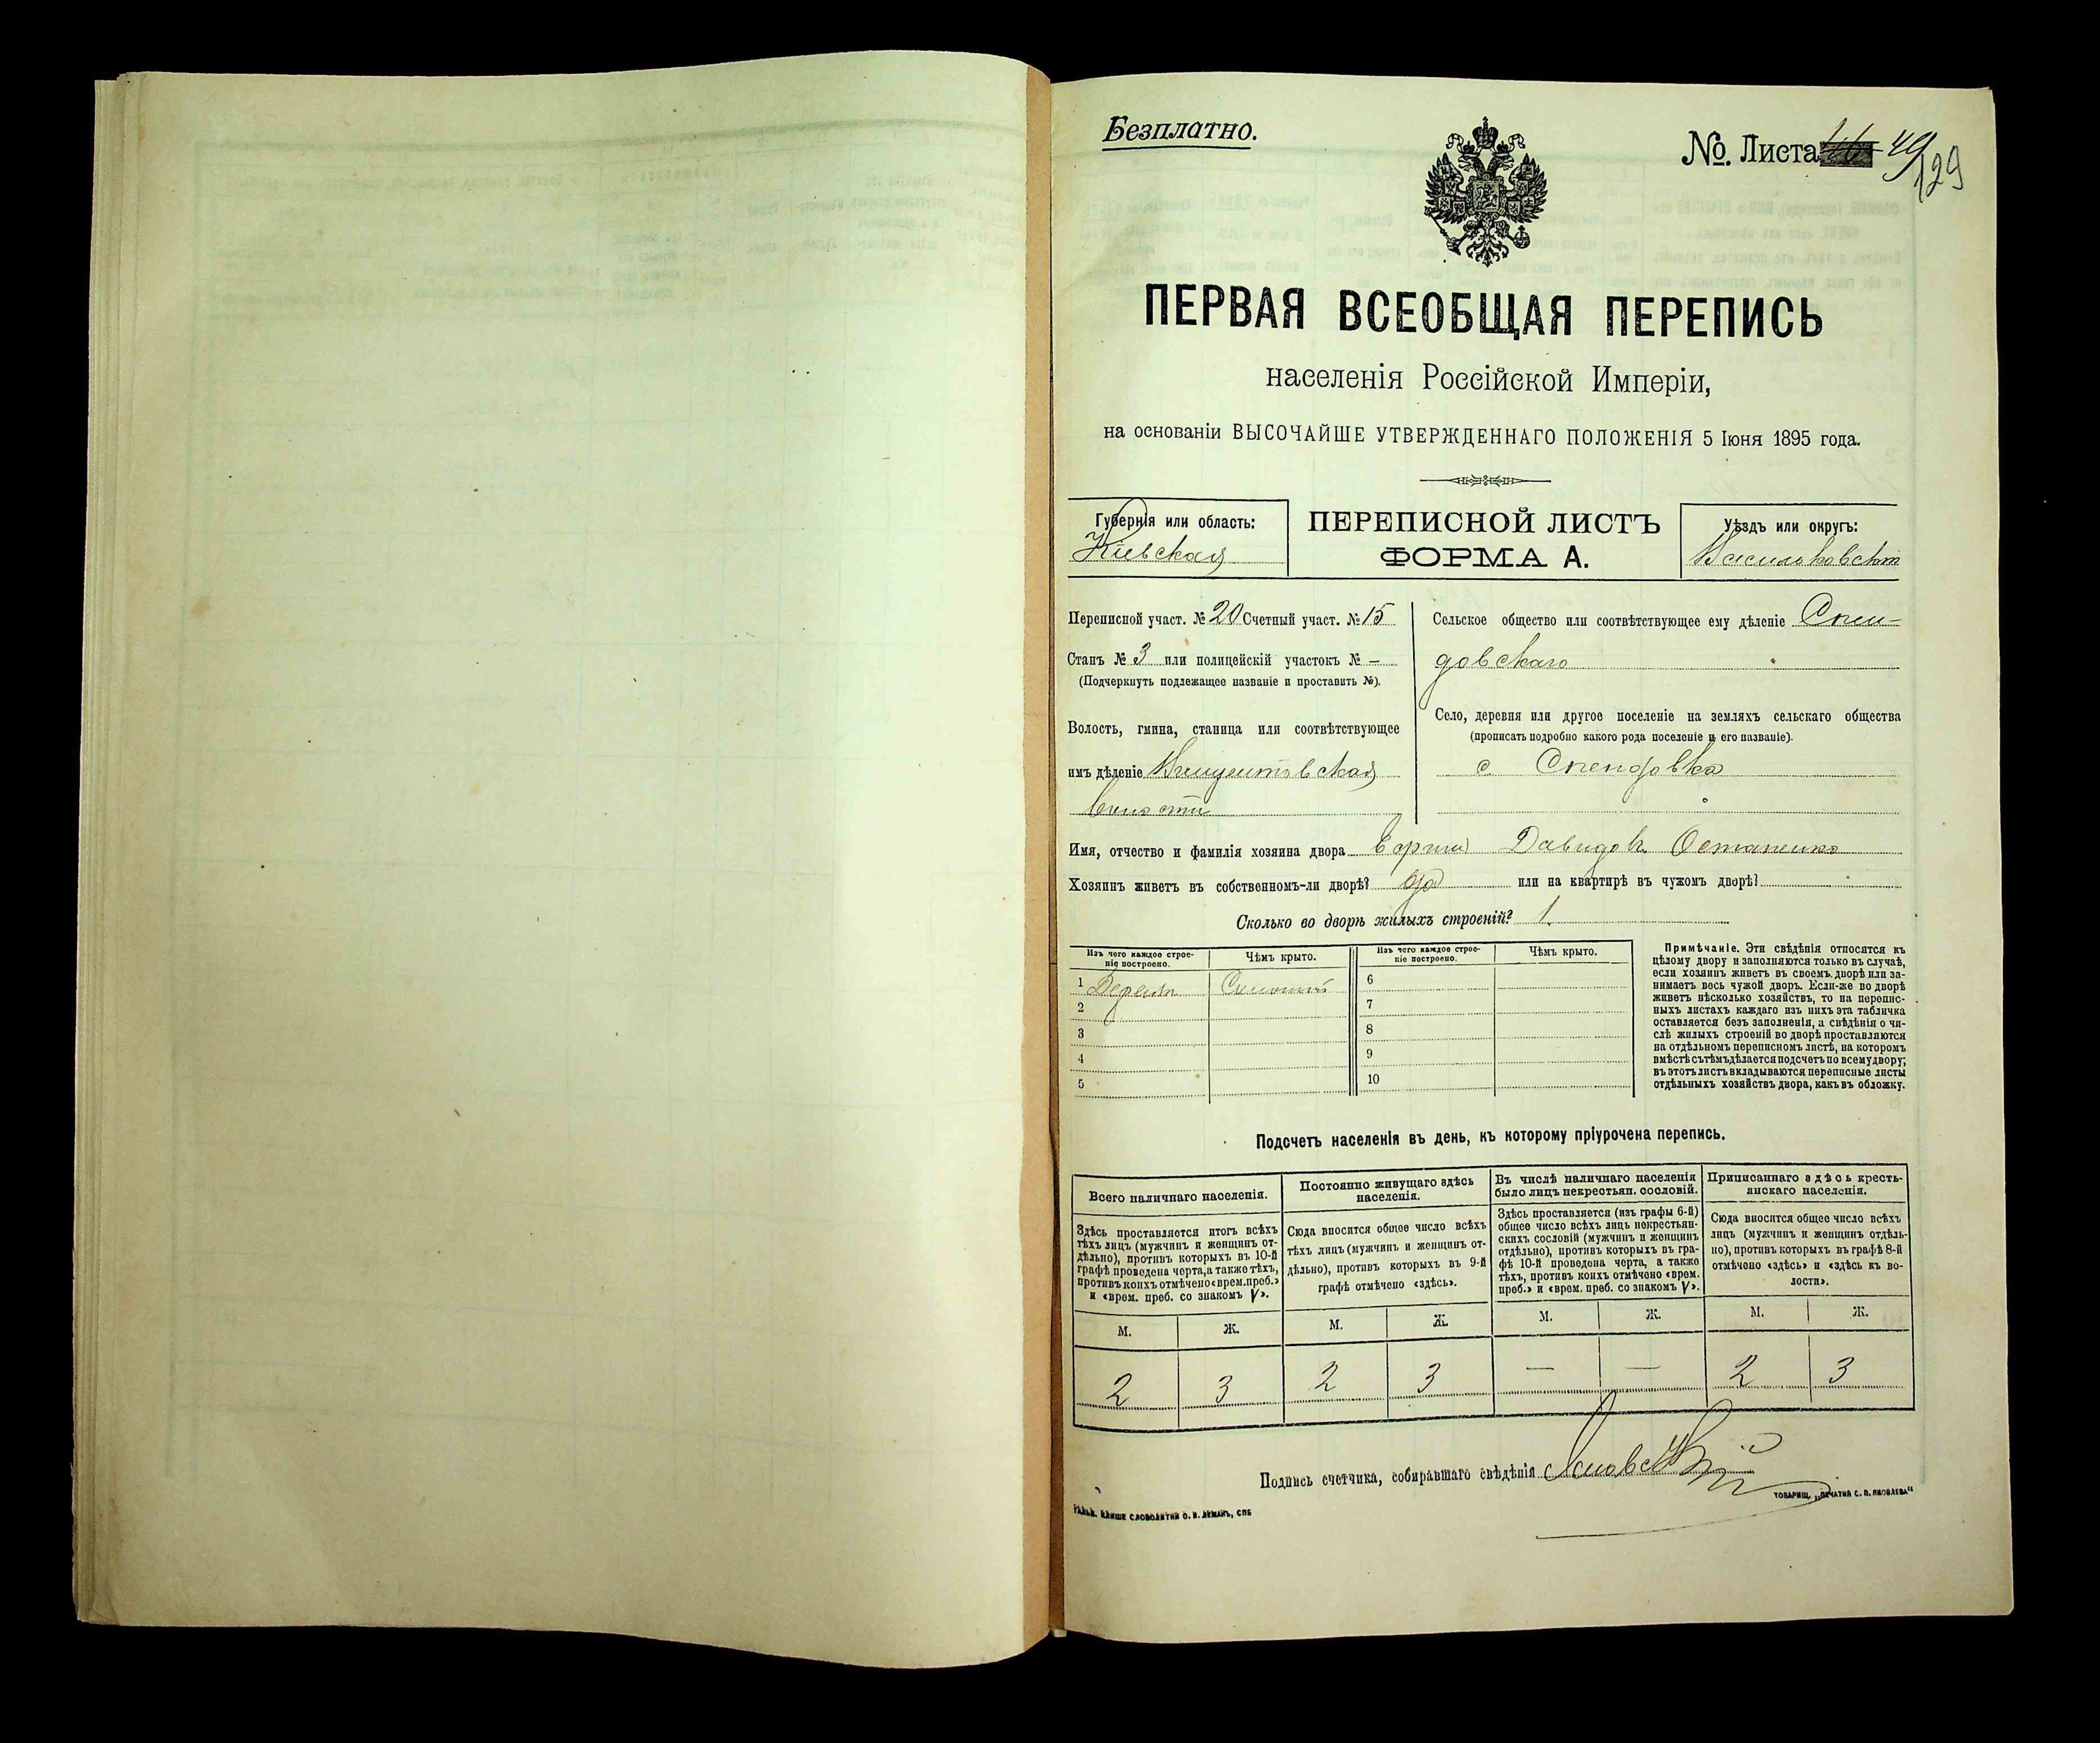 Безплатно.
№. Листа 49
129
ПЕРВАЯ ВСЕОБЩАЯ ПЕРЕПИСЬ
населенія Россійской Имперіи,
на основаніи ВЫСОЧАЙШЕ УТВЕРЖДЕННАГО ПОЛОЖЕНІЯ 5 Іюня 1895 года.
Губернія или область:
Кіевская
ПЕРЕПИСНОЙ ЛИСТЪ
ФОРМА А.
Уѣздъ или округъ:
Переписной участ. № 20 Счетный участ. № 15
Станъ № 3 или полицейскій участокъ № —
(Подчеркнуть подлежащее названіе и проставить №).
Волость, гмина, станица или соотвѣтствующее
имъ дѣленіе
Сельское общество или соотвѣтствующее ему дѣленіе Спен-
довскаго
Село, деревня или другое поселеніе на земляхъ сельскаго общества
(прописать подробно какого рода поселеніе и его названіе).
с Спендовка
Имя, отчество и фамилія хозяина двора Давидовъ Остапенко
Хозяинъ живетъ въ собственномъ-ли дворѣ? да или на квартирѣ въ чужомъ дворѣ?
Сколько во дворѣ жилыхъ строеній? 1
Изъ чего каждое строе-
ніе построено.
Чѣмъ крыто.
Изъ чего каждое строе-
ніе построено.
Чѣмъ крыто.
1 6
2 7
3 8
4 9
5 10
Примѣчаніе. Эти свѣдѣнія относятся къ
цѣлому двору и заполняются только въ случаѣ,
если хозяинъ живетъ въ своемъ дворѣ или за-
нимаетъ весь чужой дворъ. Если-же во дворѣ
живетъ нѣсколько хозяйствъ, то на перепис-
ныхъ листахъ каждаго изъ нихъ эта табличка
оставляется безъ заполненія, а свѣдѣнія о чи-
слѣ жилыхъ строеній во дворѣ проставляются
на отдѣльномъ переписномъ листѣ, на которомъ
вмѣстѣ съ тѣмъ дѣлается подсчетъ по всему двору;
въ этотъ листъ вкладываются переписные листы
отдѣльныхъ хозяйствъ двора, какъ въ обложку.
Подсчетъ населенія въ день, къ которому пріурочена перепись.
Всего наличнаго населенія.
Здѣсь проставляется итогъ всѣхъ
тѣхъ лицъ (мужчинъ и женщинъ от-
дѣльно), противъ которыхъ въ 10-й
графѣ проведена черта, а также тѣхъ,
противъ коихъ отмѣчено «врем. преб.»
и «врем. преб. со знакомъ V».
Постоянно живущаго здѣсь
населенія.
Сюда вносится общее число всѣхъ
тѣхъ лицъ (мужчинъ и женщинъ от-
дѣльно), противъ которыхъ въ 9-й
графѣ отмѣчено «здѣсь».
Въ числѣ наличнаго населенія
было лицъ некрестьян. сословій.
Здѣсь проставляется (изъ графы 6-й)
общее число всѣхъ лицъ некрестьян-
скихъ сословій (мужчинъ и женщинъ
отдѣльно), противъ которыхъ въ гра-
фѣ 10-й проведена черта, а также
тѣхъ, противъ коихъ отмѣчено «врем.
преб.» и «врем. преб. со знакомъ V».
Приписаннаго здѣсь кресть-
янскаго населенія.
Сюда вносится общее число всѣхъ
лицъ (мужчинъ и женщинъ отдѣль-
но), противъ которыхъ въ графѣ 8-й
отмѣчено «здѣсь» и «здѣсь въ во-
лости».
М. Ж. М. Ж. М. Ж. М. Ж.
2 3 2 3 — — 2 3
Подпись счетчика, собиравшаго свѣдѣнія
СЛОВОЛИТНИ О. И. ЛЕМАНЪ, СПБ
ТОВАРИЩ. „ПЕЧАТНЯ С. П. ЯКОВЛЕВА“